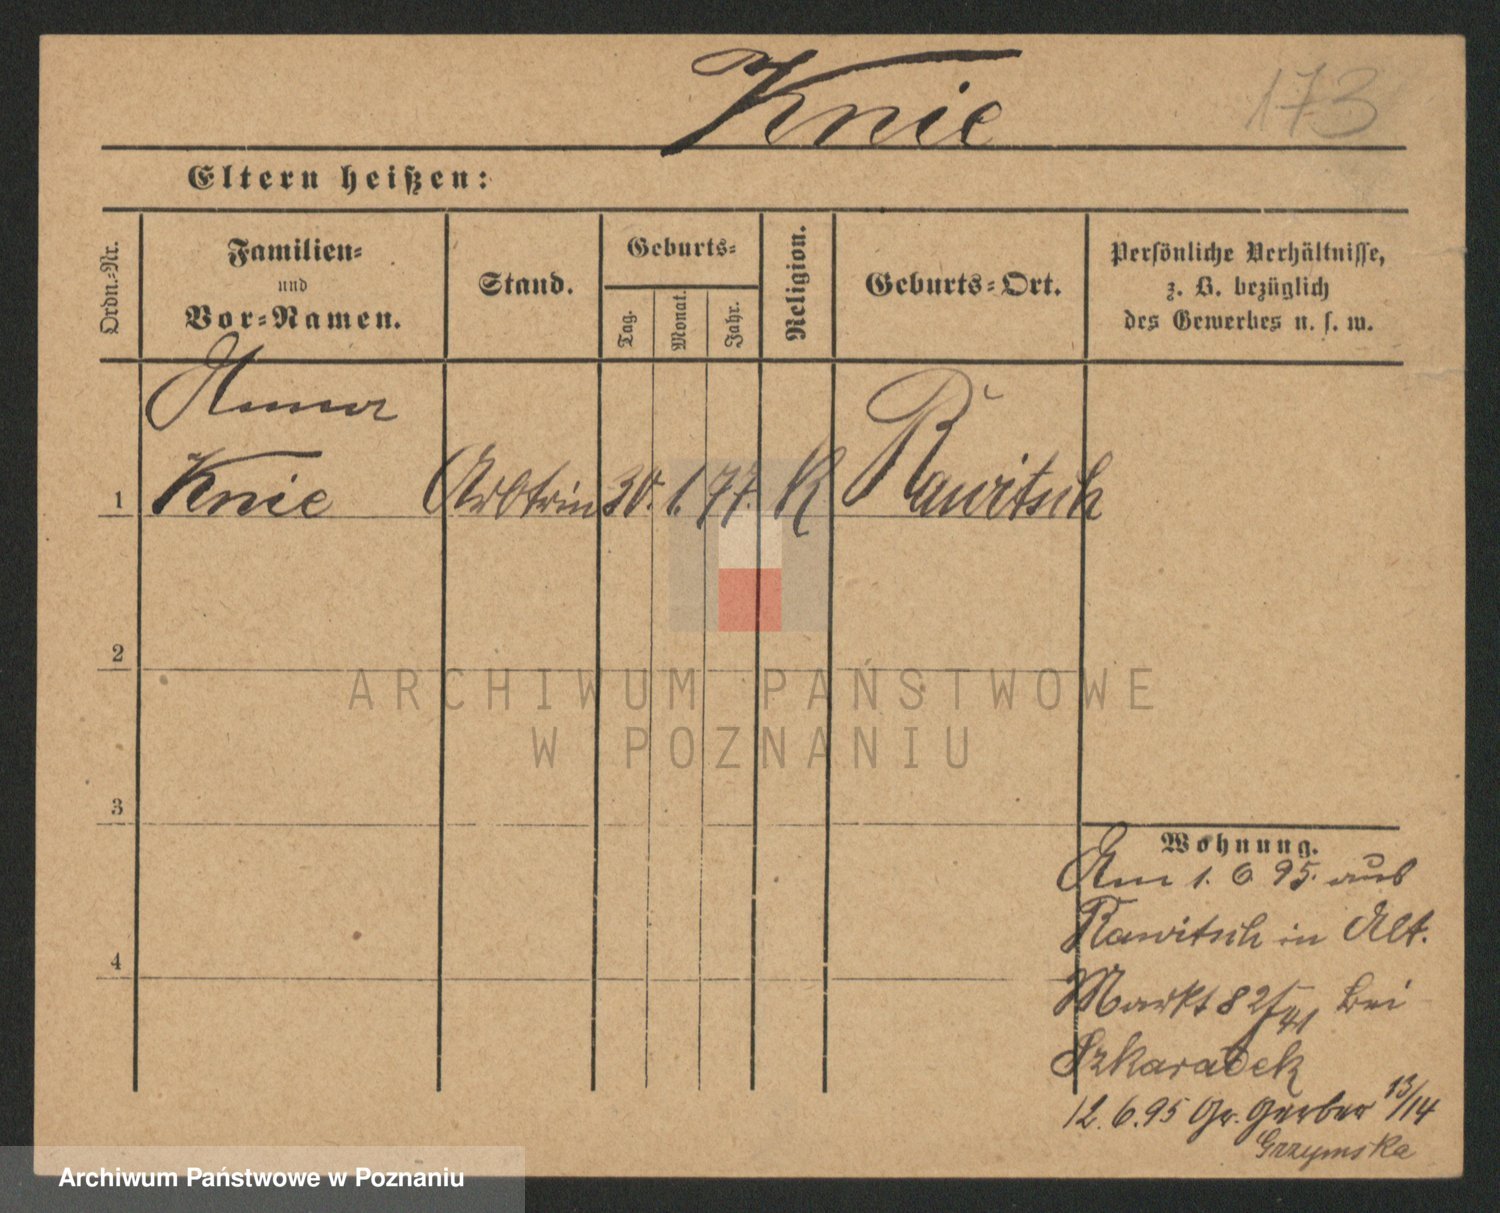 Knie
173
Eltern heißen:
Ordn.-Nr.
Familien-
und
Vor-Namen.
Stand.
Geburts-
Tag.
Monat.
Jahr.
Religion.
Geburts-Ort.
Persönliche Verhältnisse,
z. B. bezüglich
des Gewerbes u. s. w.
1
Knie
Arbtrin
30. 1. 77.
K
Rawitsch
2
3
4
ARCHIWUM PAŃSTWOWE
W POZNANIU
Wohnung.
Am 1. 6. 95. aus
Rawitsch in Alt.
Markt 82 bei
Szkaradek
12. 6. 95 Gr. Gerber 13/14
Grzymska
Archiwum Państwowe w Poznaniu